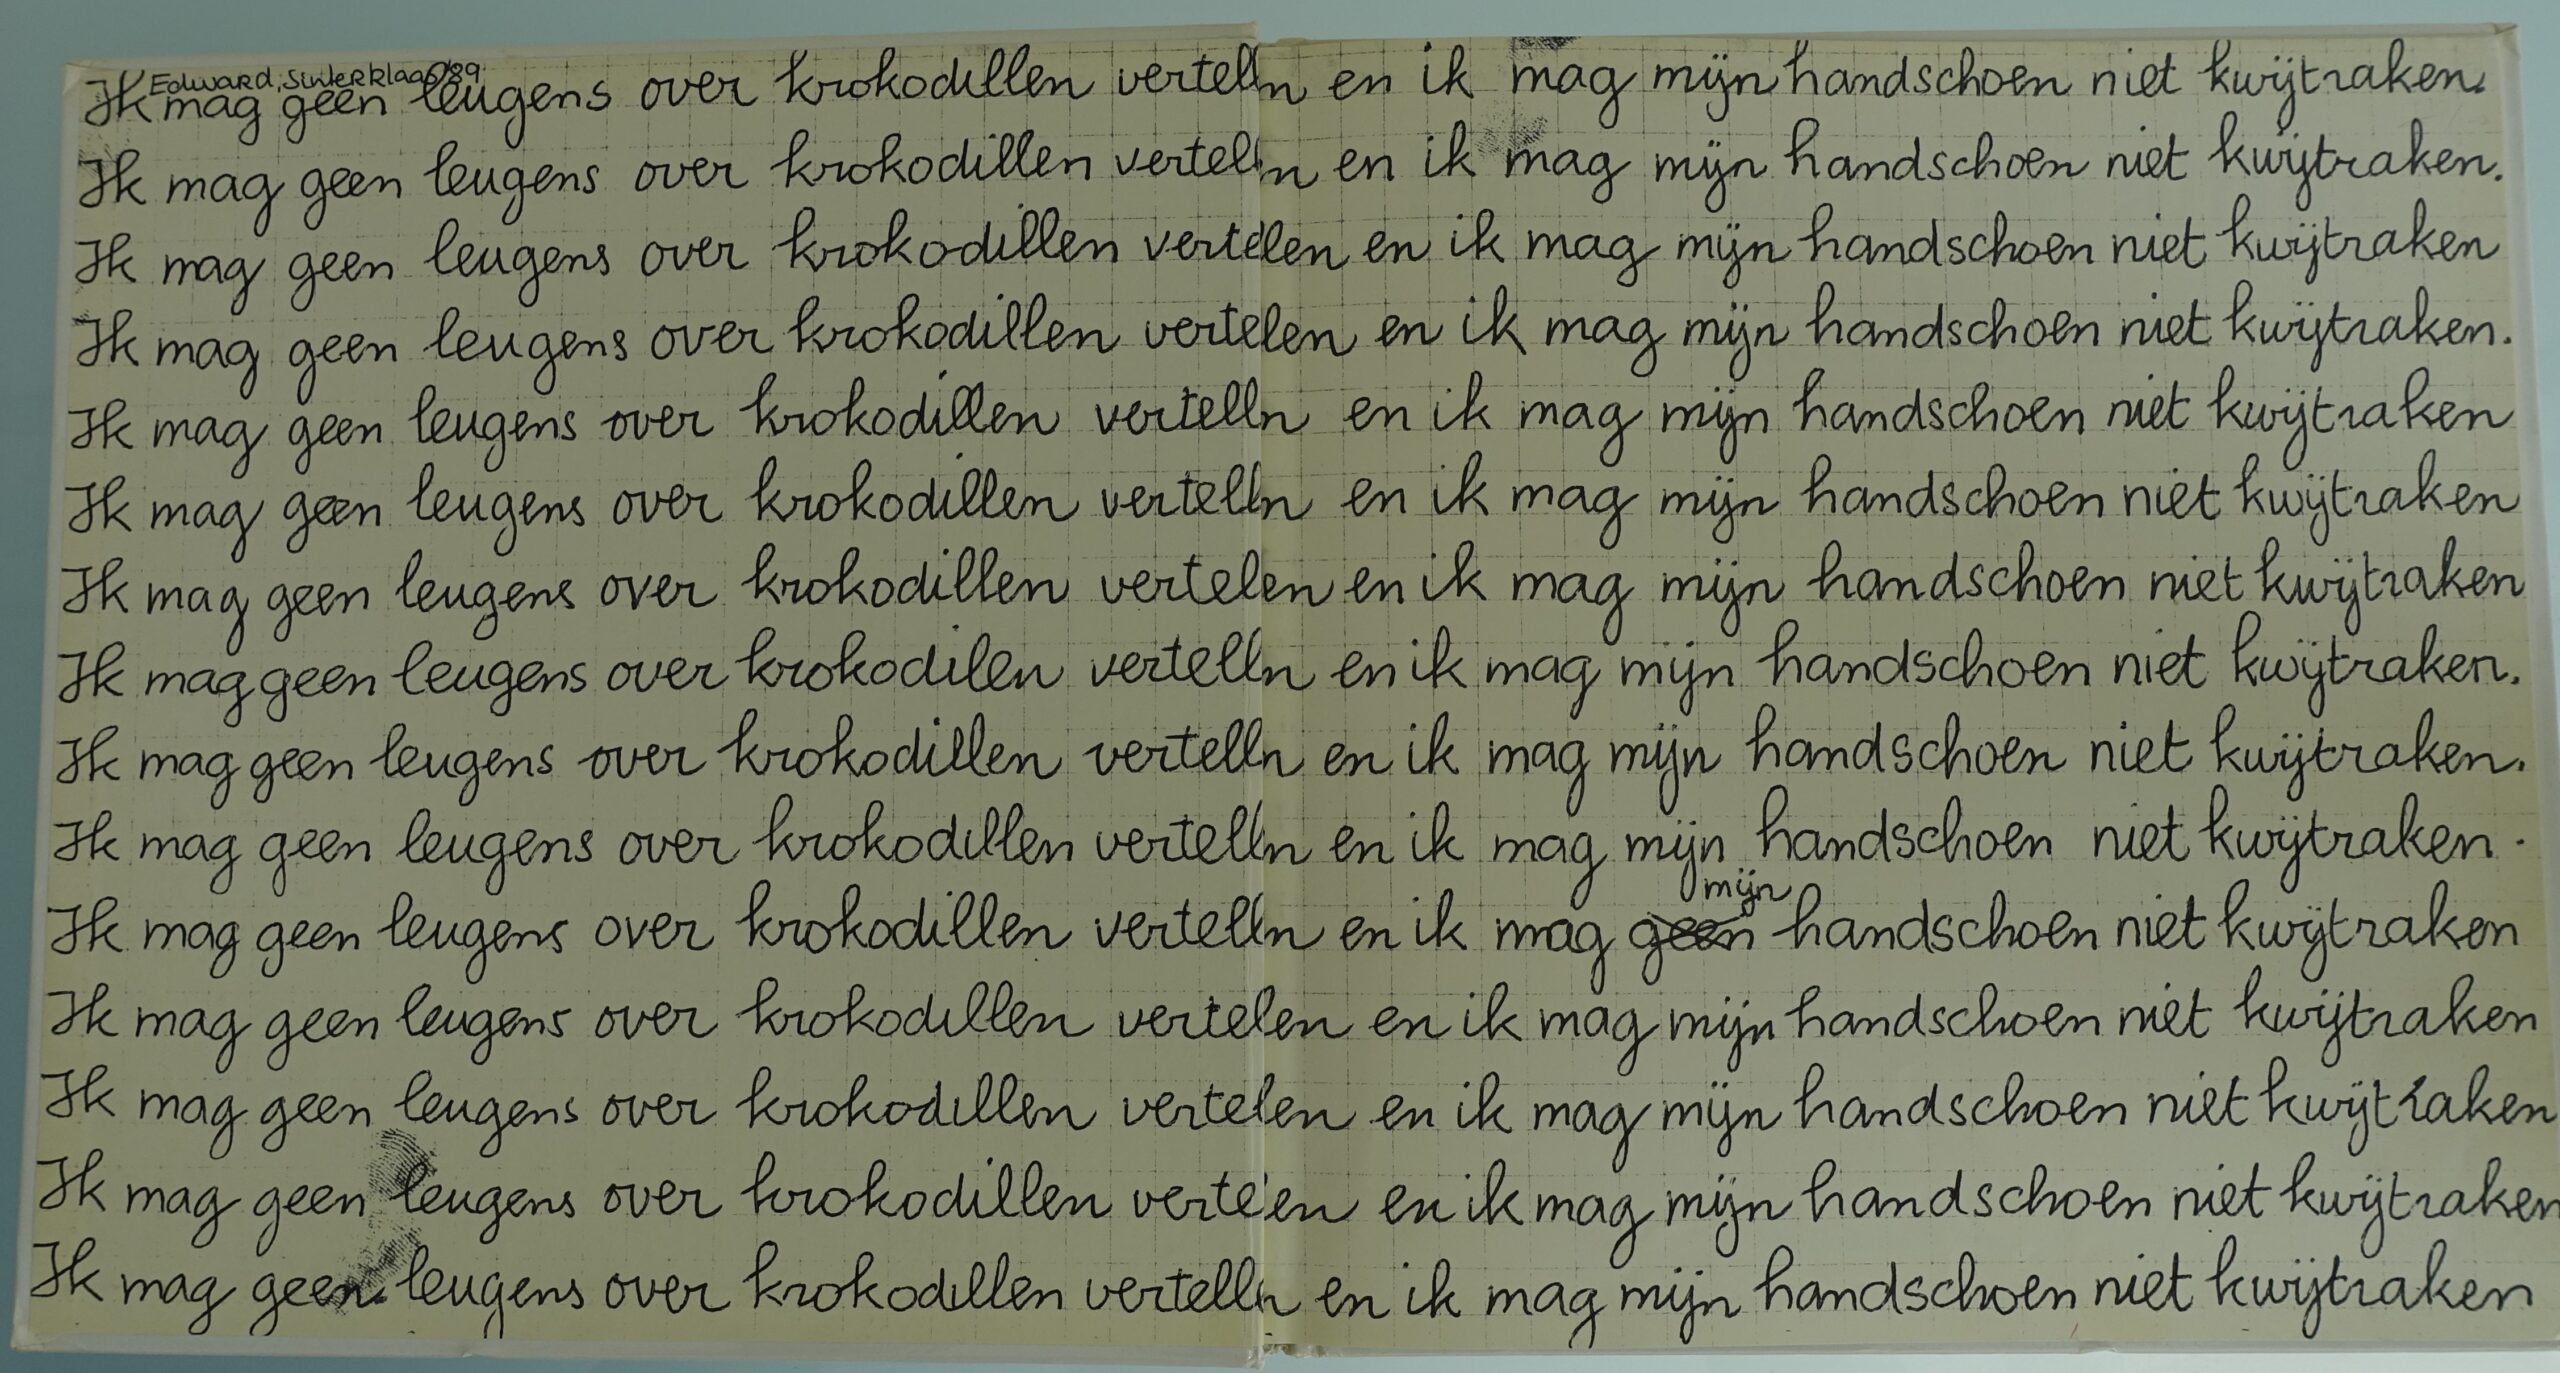 Edward, Sinterklaas '89
Ik mag geen leugens over krokodillen vertelln en ik mag mijn handschoen niet kwijtraken.
Ik mag geen leugens over krokodillen verteln en ik mag mijn handschoen niet kwijtraken.
Ik mag geen leugens over krokodillen vertelen en ik mag mijn handschoen niet kwijtraken
Ik mag geen leugens over krokodillen vertelen en ik mag mijn handschoen niet kwijtraken.
Ik mag geen leugens over krokodillen vertelln en ik mag mijn handschoen niet kwijtraken
Ik mag geen leugens over krokodillen vertelln en ik mag mijn handschoen niet kwijtraken
Ik mag geen leugens over krokodillen vertelen en ik mag mijn handschoen niet kwijtraken
Ik mag geen leugens over krokodilen vertelln en ik mag mijn handschoen niet kwijtraken.
Ik mag geen leugens over krokodillen vertelln en ik mag mijn handschoen niet kwijtraken.
Ik mag geen leugens over krokodillen vertelln en ik mag mijn handschoen niet kwijtraken.
Ik mag geen leugens over krokodillen vertelln en ik mag geen mijn handschoen niet kwijtraken
Ik mag geen leugens over krokodillen vertelen en ik mag mijn handschoen niet kwijtraken
Ik mag geen leugens over krokodillen vertelen en ik mag mijn handschoen niet kwijtraken
Ik mag geen leugens over krokodillen verteen en ik mag mijn handschoen niet kwijtraken
Ik mag geen leugens over krokodillen vertelln en ik mag mijn handschoen niet kwijtraken